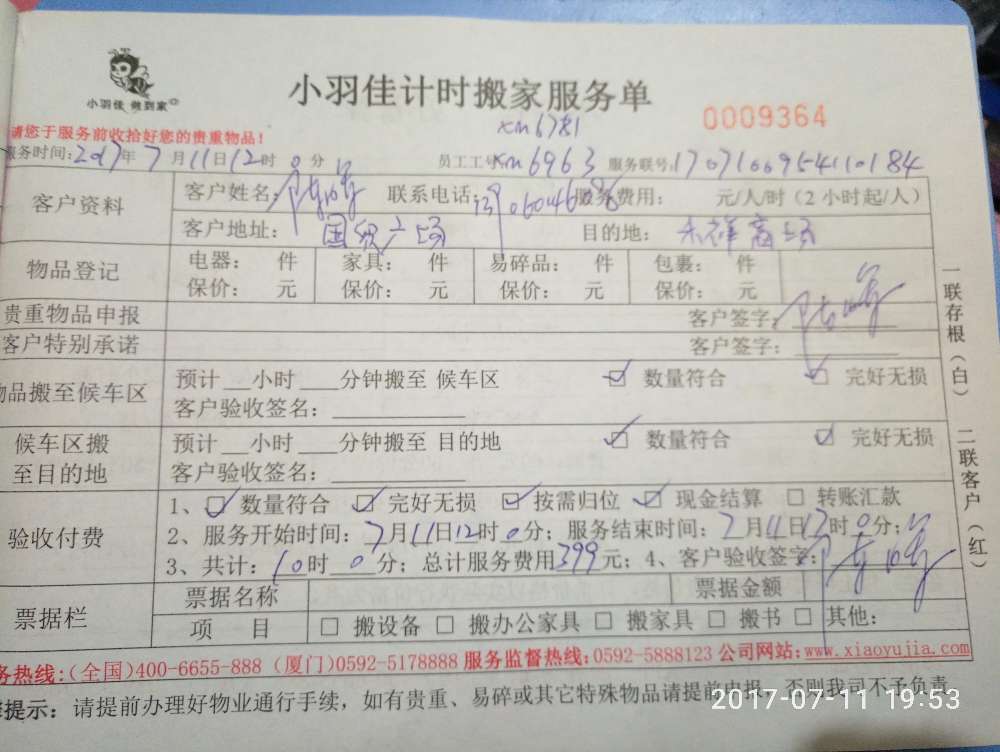 小羽佳 做到家
小羽佳计时搬家服务单
0009364
请您于服务前收拾好您的贵重物品!
xm6781
服务时间:2017年7月11日12时0分 员工工号xm6963 服务联号:1707100954110184
客户资料 客户姓名: 联系电话: 服务费用: 元/人/时(2小时起/人)
客户地址: 国贸广场 目的地: 禾祥商场
物品登记 电器: 件 家具: 件 易碎品: 件 包裹: 件
保价: 元 保价: 元 保价: 元 保价: 元
贵重物品申报 客户签字:
客户特别承诺 客户签字:
物品搬至候车区 预计__小时___分钟搬至 候车区 ☑ 数量符合 ☑ 完好无损
客户验收签名:
候车区搬至目的地 预计__小时___分钟搬至 目的地 ☑ 数量符合 ☑ 完好无损
客户验收签名:
验收付费 1、☑ 数量符合 ☑ 完好无损 ☑ 按需归位 ☑ 现金结算 □ 转账汇款
2、服务开始时间:7月11日12时0分;服务结束时间:7月11日 时0分;
3、共计:10时0分;总计服务费用399元;4、客户验收签字:
票据栏 票据名称 票据金额
项 目 □ 搬设备 □ 搬办公家具 □ 搬家具 □ 搬书 □ 其他:
一联存根(白) 二联客户(红)
务热线:(全国)400-6655-888 (厦门)0592-5178888 服务监督热线:0592-5888123 公司网站:www.xiaoyujia.com
提示: 请提前办理好物业通行手续,如有贵重、易碎或其它特殊物品请提前申报,否则我司不予负责
2017-07-11 19:53